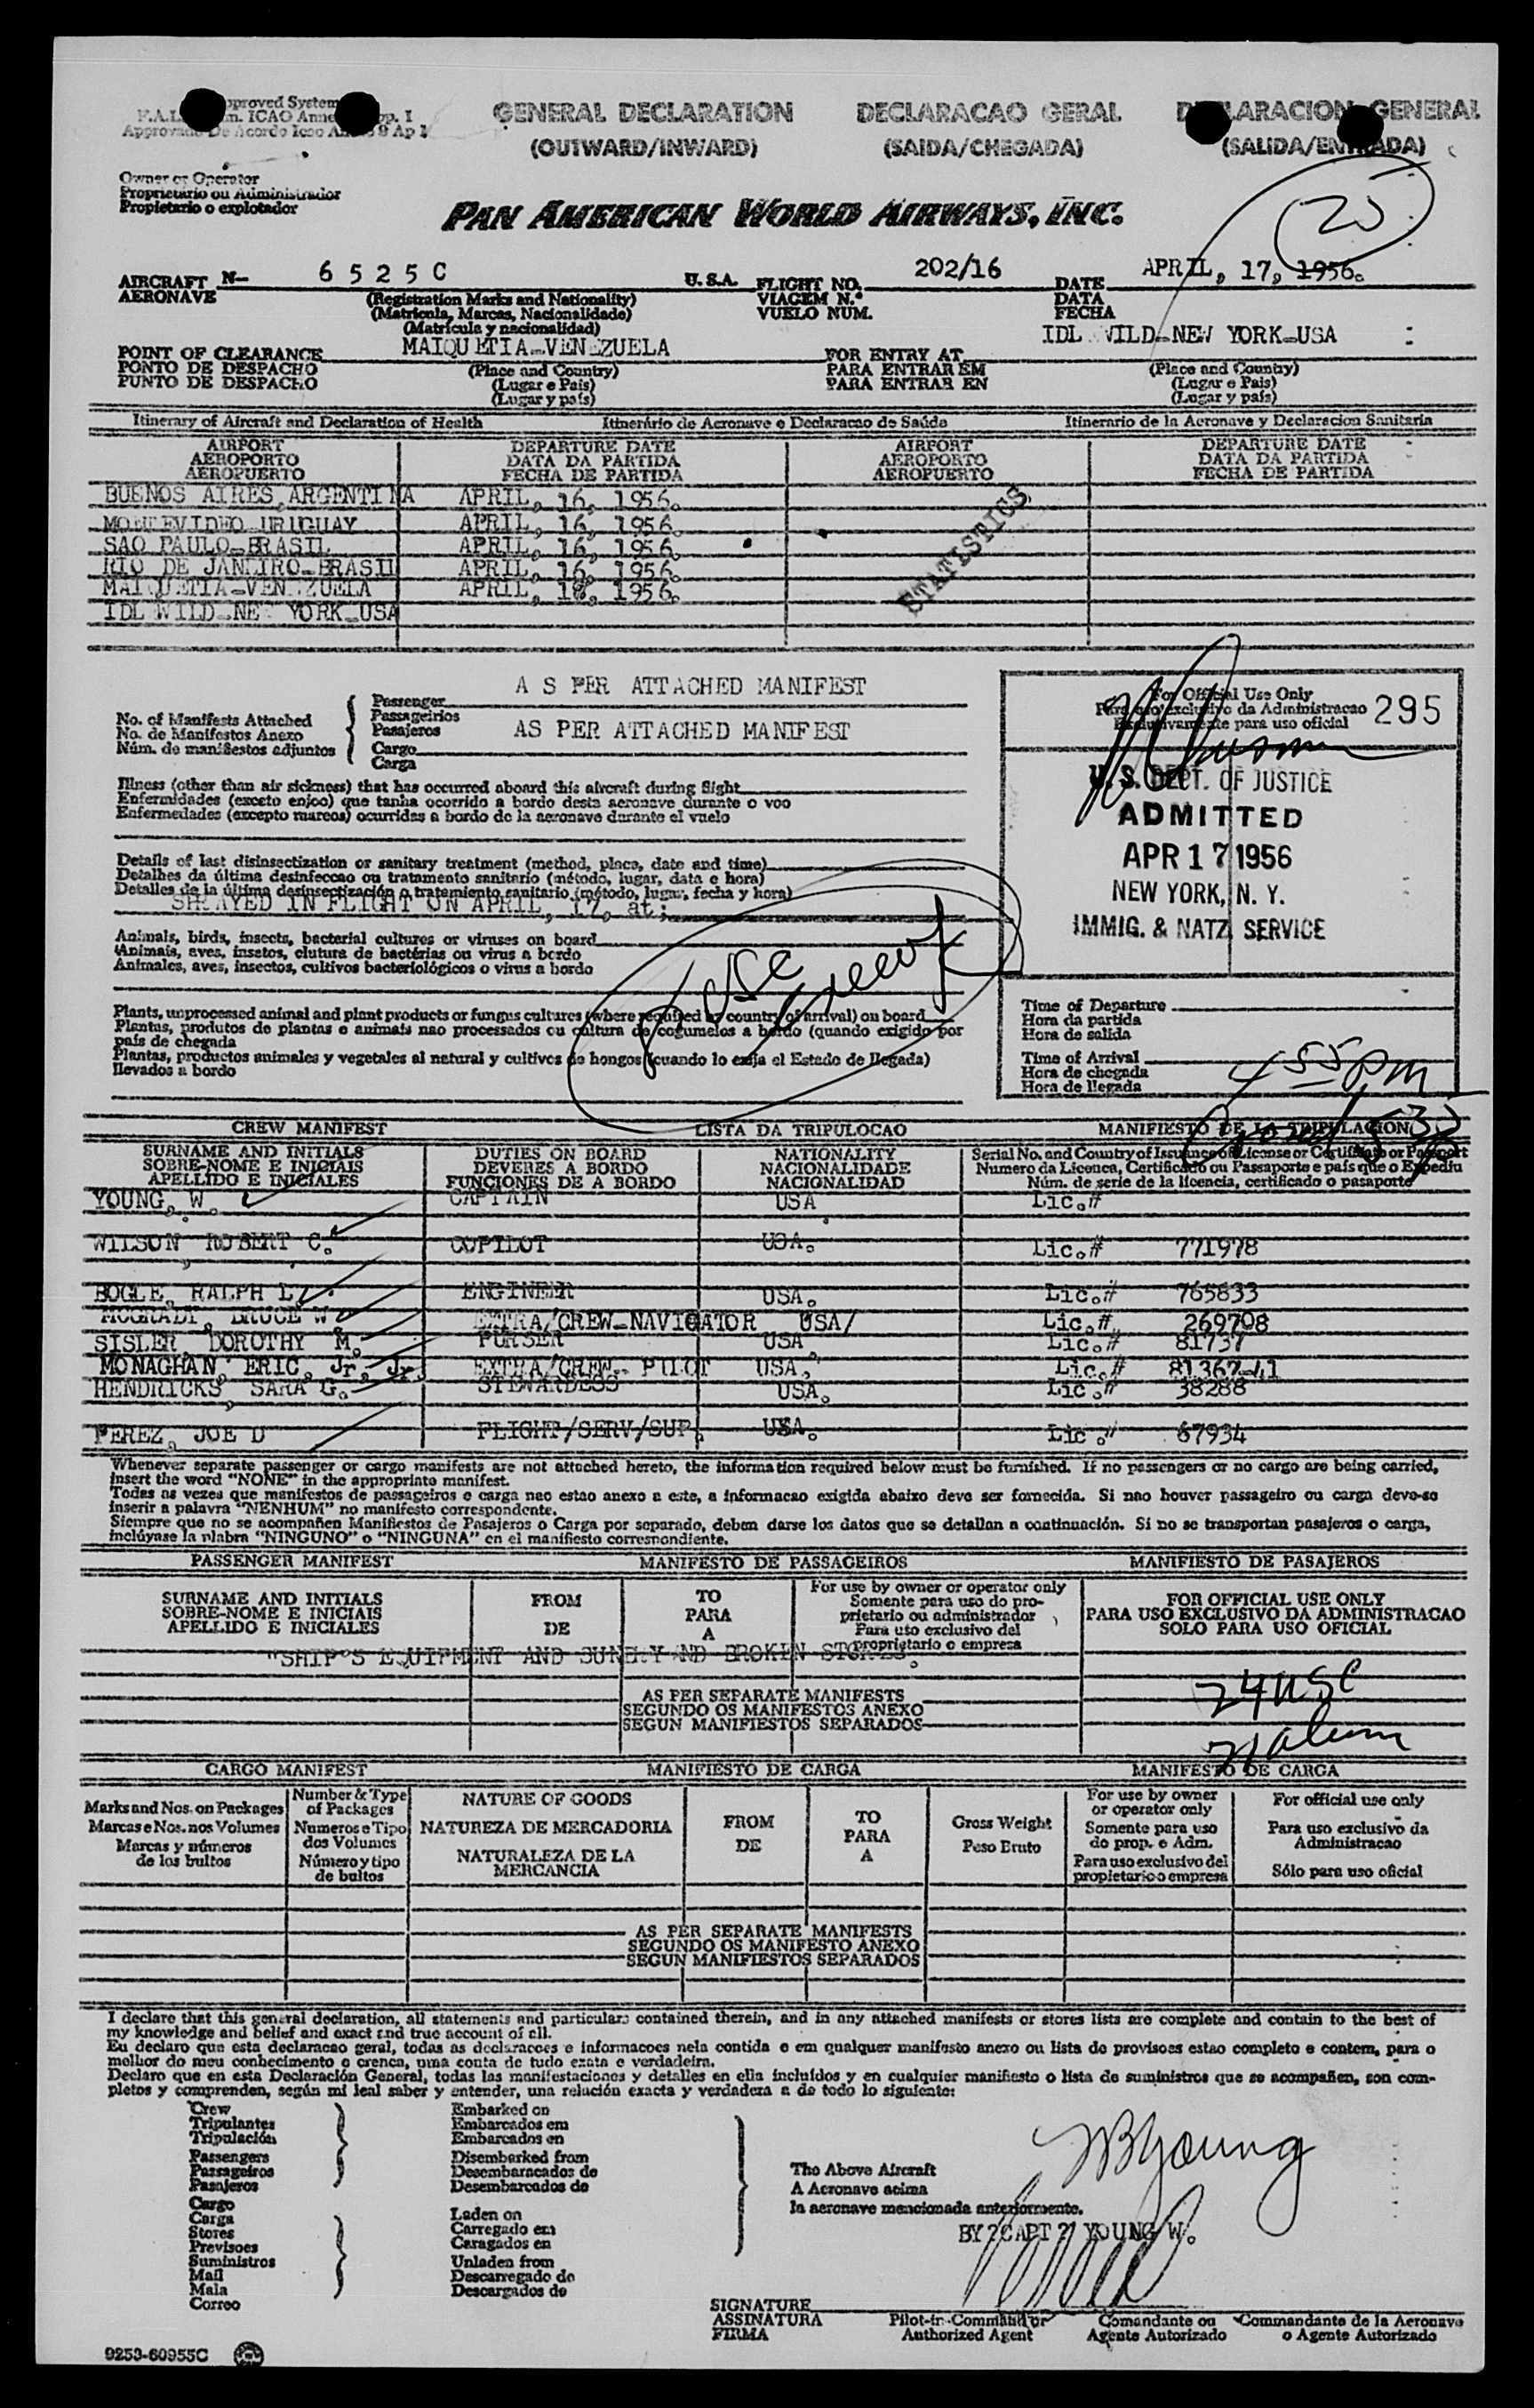 GENERAL DECLARATION DECLARACAO GERAL GENERAL
(OUTWARD/INWARD) (SAIDA/CHEGADA)
Owner or Operator
Proprietário ou Administrador
Propietario o explotador
PAN AMERICAN WORLD AIRWAYS, INC.
25
AIRCRAFT N- 6 5 2 5 C U.S.A. FLIGHT NO. 202/16 DATE APRIL, 17, 1956.
AERONAVE VIAGEM N.° DATA
VUELO NUM. FECHA
(Registration Marks and Nationality)
(Matrícula, Marcas, Nacionalidade)
(Matrícula y nacionalidad)
POINT OF CLEARANCE MAIQUETIA-VENEZUELA FOR ENTRY AT IDL WILD-NEW YORK-USA
PONTO DE DESPACHO (Place and Country) PARA ENTRAR EM (Place and Country)
PUNTO DE DESPACHO (Lugar e País) PARA ENTRAR EN (Lugar e País)
(Lugar y país) (Lugar y país)
Itinerary of Aircraft and Declaration of Health Itinerário de Aeronave e Declaracao de Saúde Itinerario de la Aeronave y Declaracion Sanitaria
AIRPORT DEPARTURE DATE AIRPORT DEPARTURE DATE
AEROPORTO DATA DA PARTIDA AEROPORTO DATA DA PARTIDA
AEROPUERTO FECHA DE PARTIDA AEROPUERTO FECHA DE PARTIDA
BUENOS AIRES, ARGENTINA APRIL, 16, 1956.
MONTEVIDEO URUGUAY APRIL, 16, 1956.
SAO PAULO-BRASIL APRIL, 16, 1956.
RIO DE JANEIRO-BRASIL APRIL, 16, 1956.
MAIQUETIA-VENEZUELA APRIL, 18, 1956.
IDL WILD-NEW YORK-USA
STATISTICS
No. of Manifests Attached
No. de Manifestos Anexo
Núm. de manifiestos adjuntos
Passenger A S PER ATTACHED MANIFEST
Passageirios
Pasajeros AS PER ATTACHED MANIFEST
Cargo
Carga
For Official Use Only
295
U. S. DEPT. OF JUSTICE
ADMITTED
APR 17 1956
NEW YORK, N. Y.
IMMIG. & NATZ SERVICE
Illness (other than air sickness) that has occurred aboard this aircraft during flight
Enfermidades (exceto enjoo) que tanha ocorrido a bordo desta aeronave durante o voo
Enfermedades (excepto mareos) ocurridas a bordo de la aeronave durante el vuelo
Details of last disinsectization or sanitary treatment (method, place, date and time)
Detalhes da última desinfeccao ou tratamento sanitario (método, lugar, data e hora)
Detalles de la última desinsectización o tratamiento sanitario (método, lugar, fecha y hora)
SPRAYED IN FLIGHT ON APRIL, 17, at;
Animals, birds, insects, bacterial cultures or viruses on board
Animais, aves, insetos, clutura de bactérias ou virus a bordo
Animales, aves, insectos, cultivos bacteriológicos o virus a bordo
Plants, unprocessed animal and plant products or fungus cultures (where required by country of arrival) on board
Plantas, produtos de plantas e animais nao processados ou cultura de cogumelos a bordo (quando exigido por
país de chegada
Plantas, productos animales y vegetales al natural y cultivos de hongos (cuando lo exija el Estado de llegada)
llevados a bordo
Time of Departure
Hora da partida
Hora de salida
Time of Arrival
Hora de chegada
Hora de llegada
455 pm
CREW MANIFEST LISTA DA TRIPULOCAO MANIFIESTO DE LA TRIPULACION
SURNAME AND INITIALS DUTIES ON BOARD NATIONALITY Serial No. and Country of Issuance of License or Certificate or Passport
SOBRE-NOME E INICIAIS DEVERES A BORDO NACIONALIDADE Numero da Licenca, Certificado ou Passaporte e país que o Expediu
APELLIDO E INICIALES FUNCIONES DE A BORDO NACIONALIDAD Núm. de serie de la licencia, certificado o pasaporte
YOUNG, W. CAPTAIN USA Lic.#
WILSON, ROBERT C. COPILOT USA. Lic.# 771978
BOGLE, RALPH L. ENGINEER USA. Lic.# 765833
MCGRADY, BRUCE W EXTRA/CREW-NAVIGATOR USA/ Lic.# 269708
SISLER, DOROTHY M. PURSER USA Lic.# 81737
MONAGHAN, ERIC, Jr, Jr. EXTRA/CREW- PILOT USA, Lic.# 81367-41
HENDRICKS, SARA G. STEWARDESS USA. Lic.# 38288
PEREZ, JOE D FLIGHT/SERV/SUP. USA. Lic.# 67934
Whenever separate passenger or cargo manifests are not attached hereto, the information required below must be furnished. If no passengers or no cargo are being carried,
insert the word "NONE" in the appropriate manifest.
Todas as vezes que manifestos de passageiros e carga nao estao anexo a este, a informacao exigida abaixo deve ser fornecida. Si nao houver passageiro ou carga deve-se
inserir a palavra "NENHUM" no manifesto correspondente.
Siempre que no se acompañen Manifiestos de Pasajeros o Carga por separado, deben darse los datos que se detallan a continuación. Si no se transportan pasajeros o carga,
inclúyase la plabra "NINGUNO" o "NINGUNA" en el manifiesto correspondiente.
PASSENGER MANIFEST MANIFESTO DE PASSAGEIROS MANIFIESTO DE PASAJEROS
SURNAME AND INITIALS FROM TO For use by owner or operator only FOR OFFICIAL USE ONLY
SOBRE-NOME E INICIAIS DE PARA Somente para uso do pro- PARA USO EXCLUSIVO DA ADMINISTRACAO
APELLIDO E INICIALES A prietario ou administrador SOLO PARA USO OFICIAL
Para uso exclusivo del
proprietario o empresa
"SHIP'S EQUIPMENT AND SUNDRY AND BROKEN STORES.
AS PER SEPARATE MANIFESTS
SEGUNDO OS MANIFESTOS ANEXO
SEGUN MANIFIESTOS SEPARADOS
24 USC
7 alien
CARGO MANIFEST MANIFIESTO DE CARGA MANIFESTO DE CARGA
Marks and Nos. on Packages Number & Type of Packages NATURE OF GOODS FROM TO Gross Weight For use by owner or operator only For official use only
Marcas e Nos. nos Volumes Numeros e Tipo dos Volumes NATUREZA DE MERCADORIA DE PARA Peso Bruto Somente para uso do prop. e Adm. Para uso exclusivo da Administracao
Marcas y números de los bultos Número y tipo de bultos NATURALEZA DE LA MERCANCIA A Para uso exclusivo del propietario o empresa Sólo para uso oficial
AS PER SEPARATE MANIFESTS
SEGUNDO OS MANIFESTO ANEXO
SEGUN MANIFIESTOS SEPARADOS
I declare that this general declaration, all statements and particulars contained therein, and in any attached manifests or stores lists are complete and contain to the best of
my knowledge and belief and exact and true account of all.
Eu declaro que esta declaracao geral, todas as declaracoes e informacoes nela contida e em qualquer manifesto anexo ou lista de provisoes estao completo e contem, para o
melhor do meu conhecimento e crenca, uma conta de tudo exata e verdadeira.
Declaro que en esta Declaración General, todas las manifestaciones y detalles en ella incluídos y en cualquier manifiesto o lista de suministros que se acompañen, son com-
pletos y comprenden, según mi leal saber y entender, una relación exacta y verdadera a de todo lo siguiente:
Crew Embarked on
Tripulantes Embarcados em
Tripulación Embarcados en
Passengers Disembarked from
Passageiros Desembaracados de
Pasajeros Desembarcados de
Cargo
Carga Laden on
Stores Carregado em
Previsoes Caragados en
Suministros Unladen from
Mail Descarregado do
Mala Descargados de
Correo
The Above Aircraft
A Aeronave acima
la aeronave mencionada anteriormente.
WB Young
BY ? CAPT ? YOUNG W.
SIGNATURE
ASSINATURA Pilot-in-Command or Comandante ou Commandante de la Aeronave
FIRMA Authorized Agent Agente Autorizado o Agente Autorizado
9253-60955C